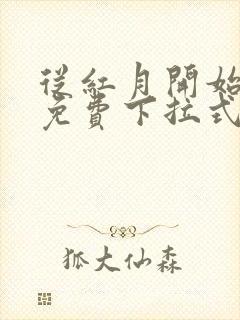 從紅月開始
免費下拉式
狐大仙森